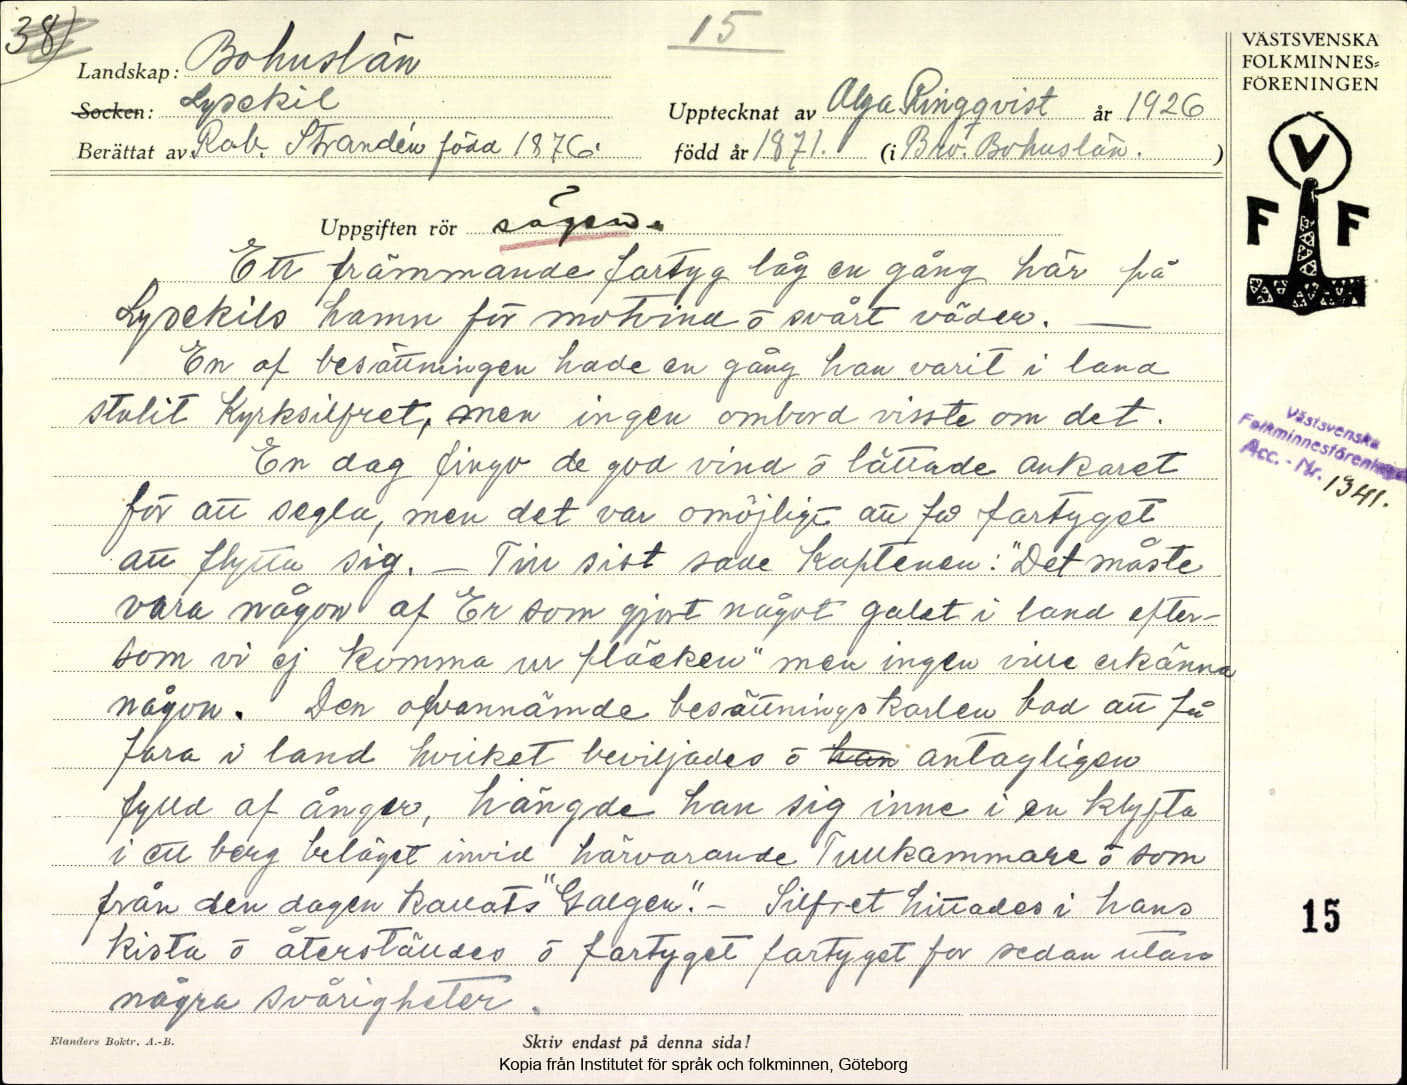 38)
15
VÄSTSVENSKA
FOLKMINNES=
FÖRENINGEN
Landskap: Bohuslän
Socken: Lysekil
Upptecknat av Olga Ringqvist år 1926
Berättat av Rob. Strandén född 1876.
född år 1871. (i Bro. Bohuslän. )
V
F F
Uppgiften rör sägen.
Ett främmande fartyg låg en gång här på
Lysekils hamn för motvind o svårt väder. —
En af besättningen hade en gång han varit i land
stulit Kyrksilfret, men ingen ombord visste om det.
Västsvenska
Folkminnesföreningen
Acc. - Nr. 1341.
En dag fingo de god vind o lättade ankaret
för att segla, men det var omöjligt att få fartyget
att flytta sig. — Till sist sade Kaptenen: "Det måste
vara någon af Er som gjort något galet i land efter-
som vi ej komma ur fläcken" men ingen ville erkänna
någon. Den ofvannämde besättningskarlen bad att få
fara i land hvilket beviljades o han antagligen
fylld af ånger, hängde han sig inne i en klyfta
i ett berg beläget invid härvarande Tullkammare o som
från den dagen kallats "Galgen". — Silfret hittades i hans
kista o återställdes o fartyget fartyget for sedan utan
några svårigheter.
15
Elanders Boktr. A.-B.
Skriv endast på denna sida!
Kopia från Institutet för språk och folkminnen, Göteborg